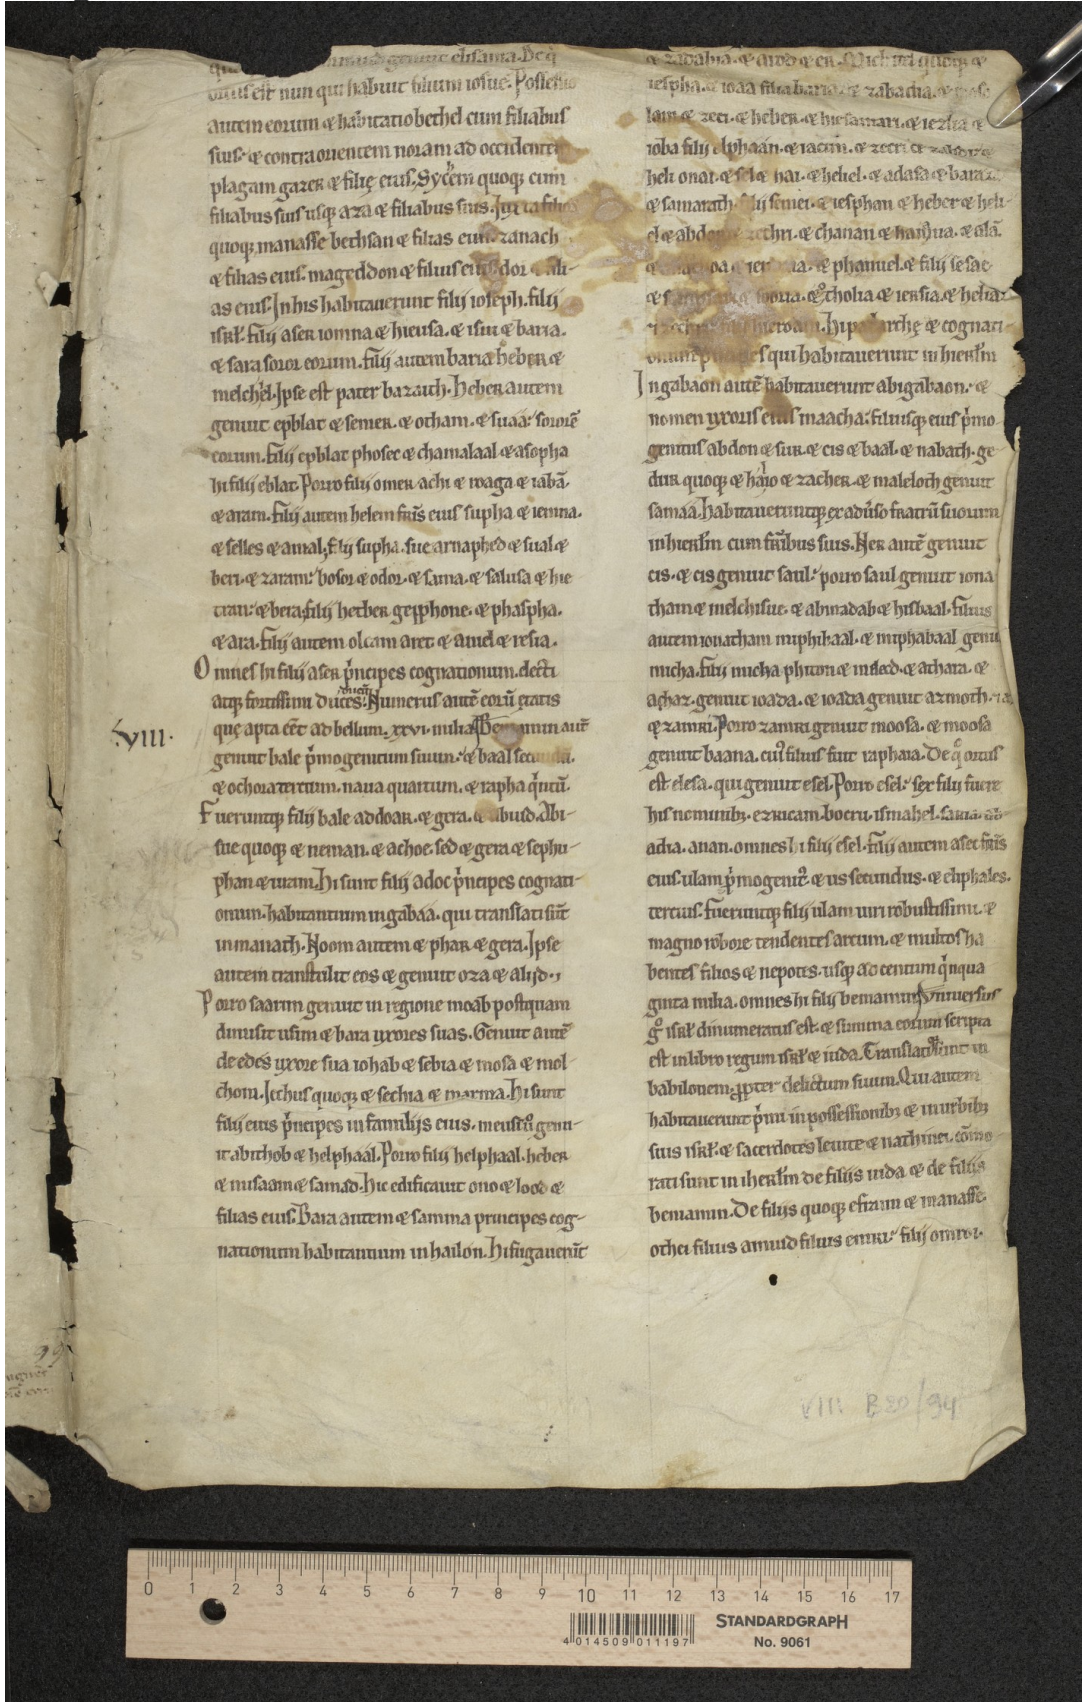 genuit elisama. De q̄
ortus est nun qui habuit filium iosue. Possessio
autem eorum ⁊ habitatio bethel cum filiabus
suis. ⁊ contra orientem noram ad occidentē
plagam gazer ⁊ filię eius. Sychem quoq; cum
filiabus suis usq; aza ⁊ filiabus suis. Iuxta filios
quoq; manasse bethsan ⁊ filias eius. zanach
⁊ filias eius. mageddon ⁊ filias eius. dor ⁊ fili-
as eius. In his habitauerunt filij ioseph. filij
isrł. Filij aser iomna ⁊ hieusa. ⁊ isui ⁊ baria.
⁊ sara soror eorum. Filij autem baria heber ⁊
melchel. Ipse est pater barzaith. Heber autem
genuit epblat ⁊ semer. ⁊ otham. ⁊ suaa: sororē
eorum. Filij epblat phosec ⁊ chamalaal ⁊ asopha
hi filij eblat. Porro filij omer. achi ⁊ roaga ⁊ iabā.
⁊ aram. Filij autem helem fr̄is eius supha ⁊ iemna.
⁊ selles ⁊ amal; filij supha. sue arnaphed ⁊ sual ⁊
beri. ⁊ zaram: bosor ⁊ odor. ⁊ sama. ⁊ salusa ⁊ hie
tran: ⁊ bera; filij hether gepphone. ⁊ phaspha.
⁊ ara. Filij autem olcam aret ⁊ aniel ⁊ resia.
Omnes hi filij aser p̄ncipes cognationum. electi
atq; fortissimi duces ducum. Numerus autē eorū ętatis
quę apta eēt ad bellum. xxvi. milia. Beniamin autē
VIII.
genuit bale p̄mogenitum suum: ⁊ baal secundū.
⁊ ochora tertium. naua quartum. ⁊ rapha q̄ntū.
Fueruntq; filij bale addoar. ⁊ gera. ⁊ abiud. Abi-
sue quoq; ⁊ neman. ⁊ achoe. sed ⁊ gera ⁊ sephu-
phan ⁊ uram. Hi sunt filij adoc p̄ncipes cognati-
onum. habitantium in gabaa. qui translati sūt
in manath. Noom autem ⁊ phar ⁊ gera. Ipse
autem transtulit eos ⁊ genuit oza ⁊ aliud.
Porro saarim genuit in regione moab postquam
dimisit usim ⁊ bara uxores suas. Genuit autē
de edes uxore sua iobab ⁊ sebia ⁊ mosa ⁊ mol-
chom. Iethus quoq; ⁊ sechia ⁊ marma. Hi sunt
filij eius p̄ncipes in familijs eius. meustū genu-
it abithob ⁊ helphaal. Porro filij helphaal. heber
⁊ misaam ⁊ samad. Hic edificauit ono ⁊ lood ⁊
filias eius. Bara autem ⁊ samma principes cog-
nationum habitantium in hailon. Hi fugauerūt
⁊ zadabia. ⁊ arod ⁊ er. Michael quoq; ⁊
iespha. ⁊ ioaa filij baria. ⁊ zabadia. ⁊
lam ⁊ zeci. ⁊ heber. ⁊ hiesamari. ⁊ iezlia ⁊
ioba filij elphaan. ⁊ iacim. ⁊ zecri ⁊
heli onai. ⁊ sel ⁊ hai. ⁊ heliel. ⁊ adasa ⁊ baraz
⁊ samarath. filij semei. ⁊ iesphan ⁊ heber ⁊ heli-
el ⁊ abdon ⁊ zechri. ⁊ chanan ⁊ hananua. ⁊ ęlā.
⁊ phanuel. ⁊ filij sesac.
⁊ sooria. ⁊ otholia ⁊ iersia. ⁊ helia.
hieroam. Hi patriarchę ⁊ cognati-
onum principes qui habitauerunt in hierłm
In gabaon autē habitauerunt abigabaon. ⁊
nomen uxoris eius maacha: filiusq; eius p̄mo
genitus abdon ⁊ sur. ⁊ cis ⁊ baal. ⁊ nabath. ge
dur quoq; ⁊ haio ⁊ zacher. ⁊ maleloch genuit
samaa. Habitaueruntq; ex aduso fratrū suorum
in hierłm cum fribus suis. Ner autē genuit
cis. ⁊ cis genuit saul: porro saul genuit iona
tham ⁊ melchisue. ⁊ abinadab ⁊ hisbaal. Filius
autem ionatham miphibaal. ⁊ miphabaal genu
micha. Filij micha phiton ⁊ meleed. ⁊ athara. ⁊
achaz. genuit ioada. ⁊ ioada genuit azmoth.
⁊ zamri. Porro zamri genuit moosa. ⁊ moosa
genuit baana. cui' filius fuit raphaia. De q° ortus
est elesa. qui genuit esel. Porro esel: sex filij fuere
his nominibz. ezricam. bocru. ismahel. saria. ab-
adia. anan. omnes hi filij esel. Filij autem asec fr̄is
eius. ulam p̄mogenit'. ⁊ us secundus. ⁊ eliphales.
tercius. Fueruntq; filij ulam uiri robustissimi. ⁊
magno robore tendentes arcum. ⁊ multos ha
bentes filios ⁊ nepotes. usq; ad centum q̄nqua
ginta milia. omnes hi filij beniamin. Vniuersus
g° isrł dinumeratus est. ⁊ summa eorum scripta
est in libro regum isrł ⁊ iuda. Translatiq; sunt in
babilonem: ꝓpter delictum suum. Qui autem
habitauerunt p̄mi in possessionibz ⁊ in urbibz
suis isrł. ⁊ sacerdotes leuite ⁊ nathinei. cōmo-
rati sunt in iherłm de filijs iuda ⁊ de filijs
beniamin. De filijs quoq; efraim ⁊ manasse.
othei filius amiud filius emri: filij omroi.
VIII B 20/94
0 1 2 3 4 5 6 7 8 9 10 11 12 13 14 15 16 17
4 014509 011197
STANDARDGRAPH
No. 9061